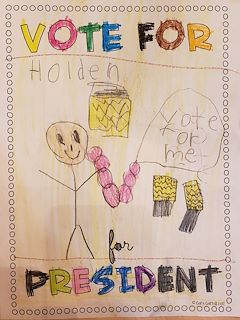 VOTE FOR
Holden
Vote
for
me
for
PRESIDENT